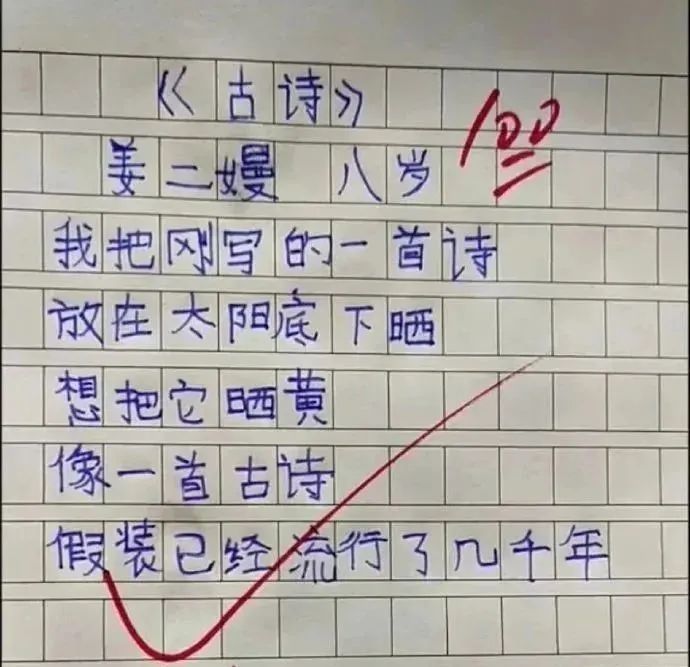 《古诗》
100
姜二嫚 八岁
我把刚写的一首诗
放在太阳底下晒
想把它晒黄
像一首古诗
假装已经流行了几千年